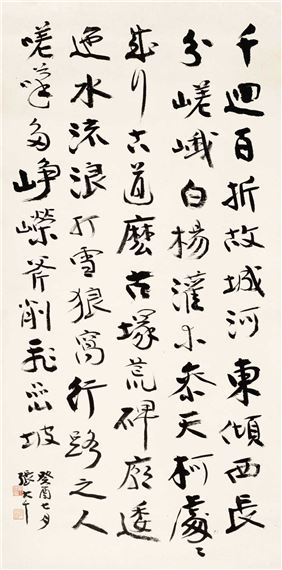 千迴百折故城河東傾西
嵯峨白楊灌木參天柯處〻
成行古道古塚荒碑廟逶
迤水流浪打雪狼窩行路之人
嗟多崢嶸斧削飛坡
癸酉七月
張大千